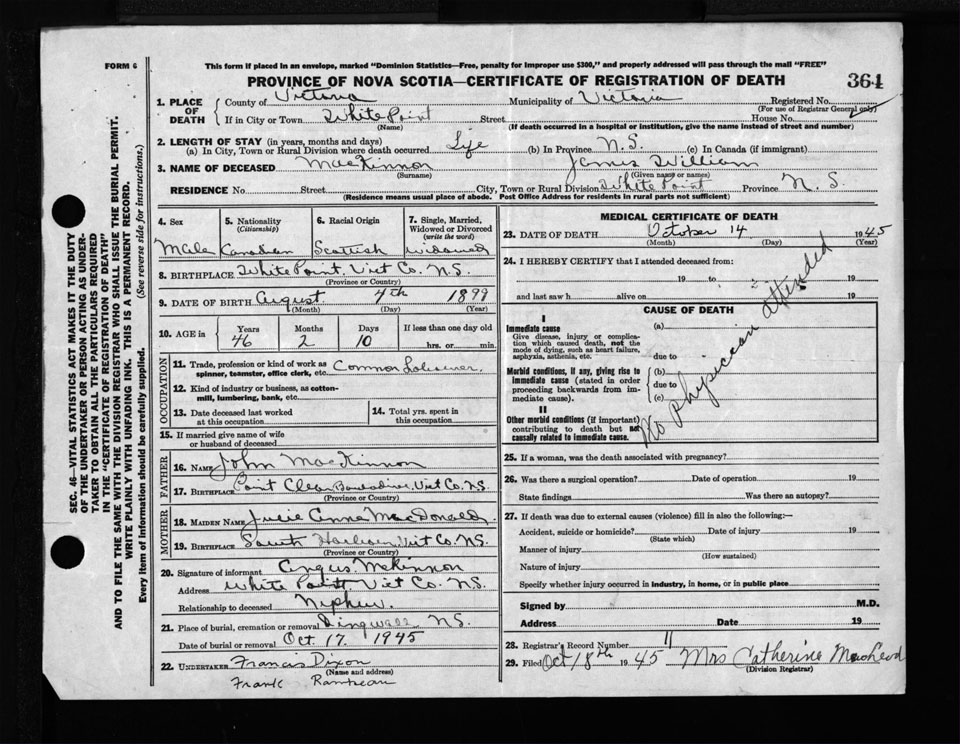 FORM 6
This form if placed in an envelope, marked "Dominion Statistics—Free, penalty for improper use $300," and properly addressed will pass through the mail "FREE"
PROVINCE OF NOVA SCOTIA—CERTIFICATE OF REGISTRATION OF DEATH
364
1. PLACE OF DEATH
County of Victoria Municipality of Victoria Registered No.
(For use of Registrar General only)
If in City or Town White Point Street House No.
(Name) (If death occurred in a hospital or institution, give the name instead of street and number)
2. LENGTH OF STAY (in years, months and days)
(a) In City, Town or Rural Division where death occurred Life (b) In Province N.S. (c) In Canada (if immigrant)
3. NAME OF DECEASED MacKinnon James William
(Surname) (Given name or names)
RESIDENCE No. Street City, Town or Rural Division White Point Province N.S.
(Residence means usual place of abode. Post Office Address for residents in rural parts not sufficient)
4. Sex
Male
5. Nationality
(Citizenship)
Canadian
6. Racial Origin
Scottish
7. Single, Married, Widowed or Divorced
(write the word)
widowed
8. BIRTHPLACE White Point, Vict Co. N.S.
(Province or Country)
9. DATE OF BIRTH August 4th 1899
(Month) (Day) (Year)
10. AGE in
Years Months Days If less than one day old
46 2 10 hrs. or min.
OCCUPATION
11. Trade, profession or kind of work as spinner, teamster, office clerk, etc. Common
12. Kind of industry or business, as cotton-mill, lumbering, bank, etc.
13. Date deceased last worked at this occupation
14. Total yrs. spent in this occupation
15. If married give name of wife or husband of deceased
FATHER
16. NAME John MacKinnon
17. BIRTHPLACE Point Clear Vict Co. N.S.
(Province or Country)
MOTHER
18. MAIDEN NAME Julie Anna MacDonald
19. BIRTHPLACE South Harbour Vict Co. N.S.
(Province or Country)
20. Signature of informant Angus McKinnon
Address White Point, Vict Co. N.S.
Relationship to deceased Nephew.
21. Place of burial, cremation or removal Dingwall N.S.
Date of burial or removal Oct 17. 1945
22. UNDERTAKER Francis Dixon
(Name and address)
Frank
MEDICAL CERTIFICATE OF DEATH
23. DATE OF DEATH October 14 1945
(Month) (Day) (Year)
24. I HEREBY CERTIFY that I attended deceased from:
19 to 19
and last saw h alive on 19
CAUSE OF DEATH
I
Immediate cause
Give disease, injury or complication which caused death, not the mode of dying, such as heart failure, asphyxia, asthenia, etc.
(a)
due to
Morbid conditions, if any, giving rise to immediate cause (stated in order proceeding backwards from immediate cause).
(b)
due to
(c)
II
Other morbid conditions (if important) contributing to death but not causally related to immediate cause.
No physician attended
25. If a woman, was the death associated with pregnancy?
26. Was there a surgical operation? Date of operation 19
State findings Was there an autopsy?
27. If death was due to external causes (violence) fill in also the following:—
Accident, suicide or homicide? Date of injury 19
(State which)
Manner of injury
(How sustained)
Nature of injury
Specify whether injury occurred in industry, in home, or in public place
Signed by M.D.
Address Date 19
28. Registrar's Record Number 11
29. Filed Oct 18th 1945 Mrs Catherine MacLeod
(Division Registrar)
SEC. 46—VITAL STATISTICS ACT MAKES IT THE DUTY
OF THE UNDERTAKER OR PERSON ACTING AS UNDER-
TAKER TO OBTAIN ALL THE PARTICULARS REQUIRED
IN THE "CERTIFICATE OF REGISTRATION OF DEATH"
AND TO FILE THE SAME WITH THE DIVISION REGISTRAR WHO SHALL ISSUE THE BURIAL PERMIT.
WRITE PLAINLY WITH UNFADING INK. THIS IS A PERMANENT RECORD.
Every item of information should be carefully supplied. (See reverse side for instructions.)